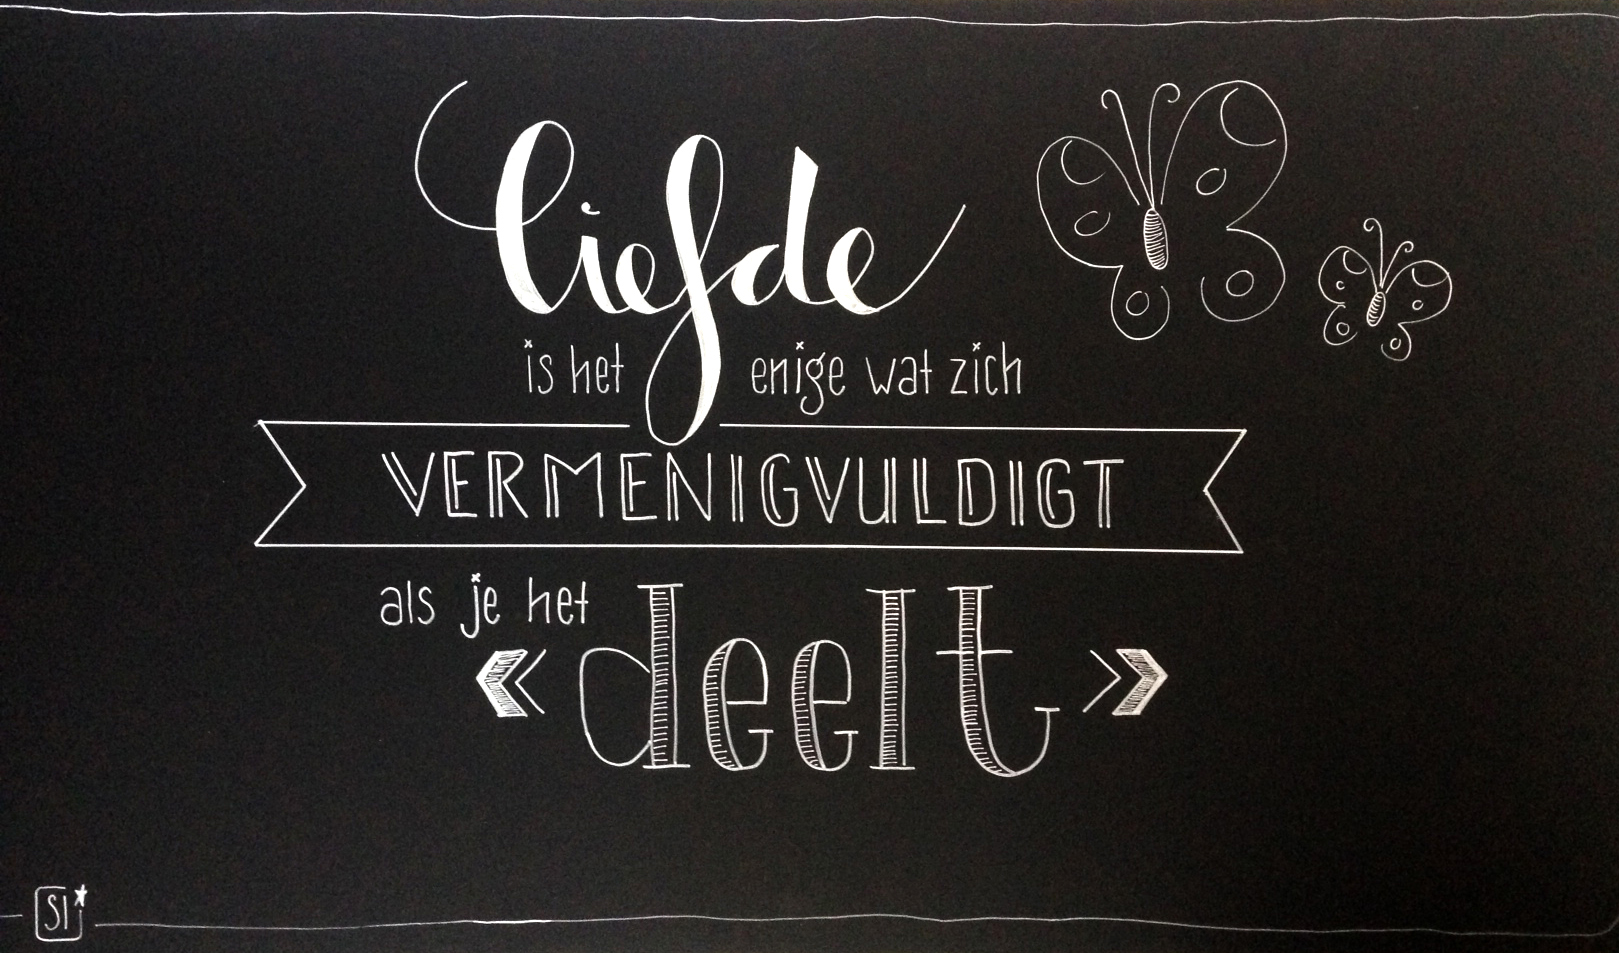 liefde
is het enige wat zich
VERMENIGVULDIGT
als je het
deelt
SI